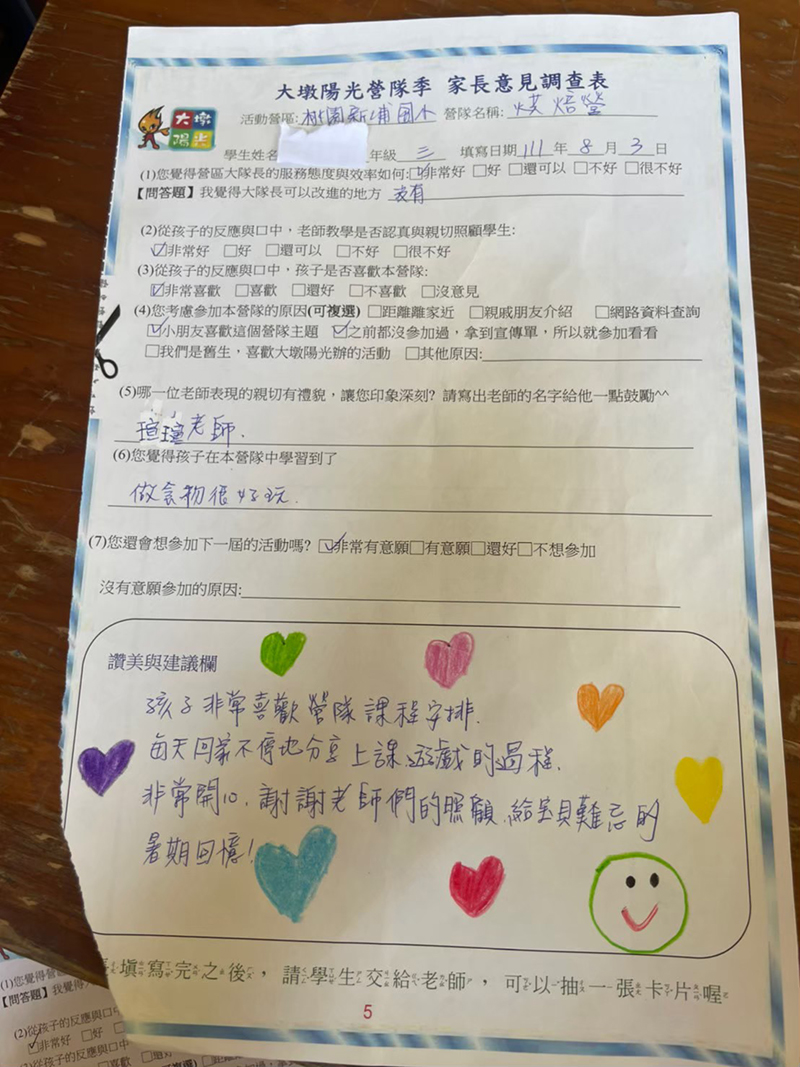 大墩陽光營隊季 家長意見調查表
大墩
陽光
活動營區:桃園新埔國小 營隊名稱: 烘焙營
學生姓名 年級 三 填寫日期 111 年 8 月 3 日
(1)您覺得營區大隊長的服務態度與效率如何:☑非常好 □好 □還可以 □不好 □很不好
【問答題】我覺得大隊長可以改進的地方 沒有
(2)從孩子的反應與口中，老師教學是否認真與親切照顧學生:
☑非常好 □好 □還可以 □不好 □很不好
(3)從孩子的反應與口中，孩子是否喜歡本營隊:
☑非常喜歡 □喜歡 □還好 □不喜歡 □沒意見
(4)您考慮參加本營隊的原因(可複選) □距離離家近 □親戚朋友介紹 □網路資料查詢
☑小朋友喜歡這個營隊主題 ☑之前都沒參加過，拿到宣傳單，所以就參加看看
□我們是舊生，喜歡大墩陽光辦的活動 □其他原因:
(5)哪一位老師表現的親切有禮貌，讓您印象深刻? 請寫出老師的名字給他一點鼓勵^^
瑄瑄老師.
(6)您覺得孩子在本營隊中學習到了
做食物很好玩.
(7)您還會想參加下一屆的活動嗎? ☑非常有意願□有意願□還好□不想參加
沒有意願參加的原因:
讚美與建議欄
孩子非常喜歡營隊課程安排.
每天回家不停地分享上課遊戲的過程.
非常開心.謝謝老師們的照顧.給寶貝難忘的
暑期回憶!
填寫完之後，請學生交給老師，可以抽一張卡片喔
5
(1)您覺得營
【問答題】我覺得
(2)從孩子的反應與口中
☑非常好 □好